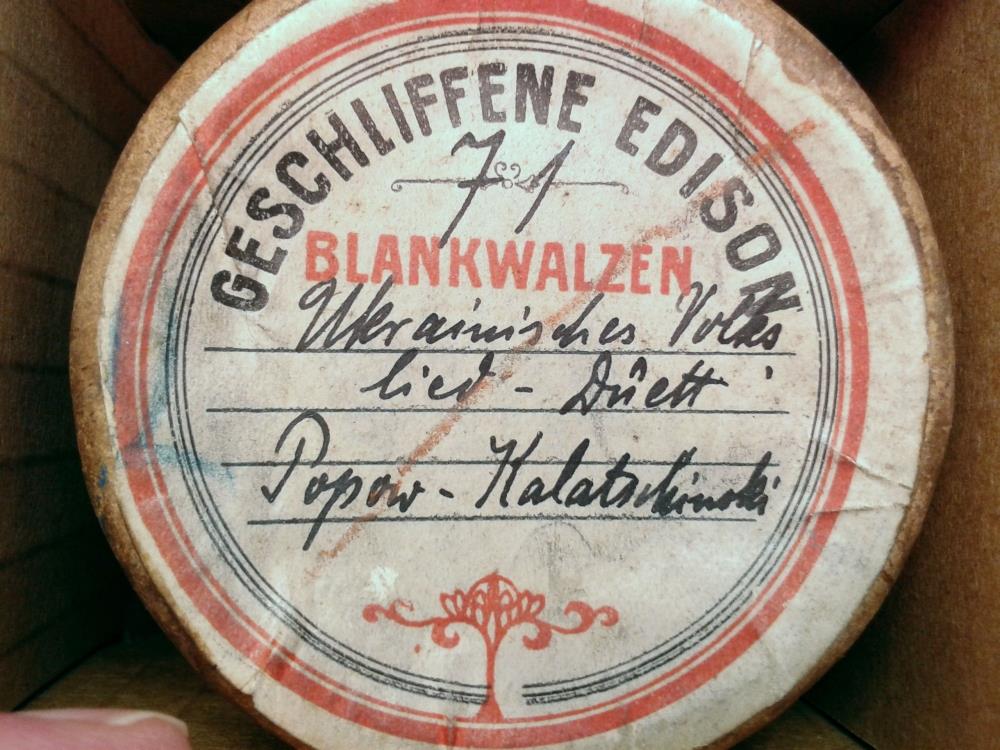 GESCHLIFFENE EDISON
71
BLANKWALZEN
Ukrainisches Volks
lied - Duett
Popow - Kalatschinski